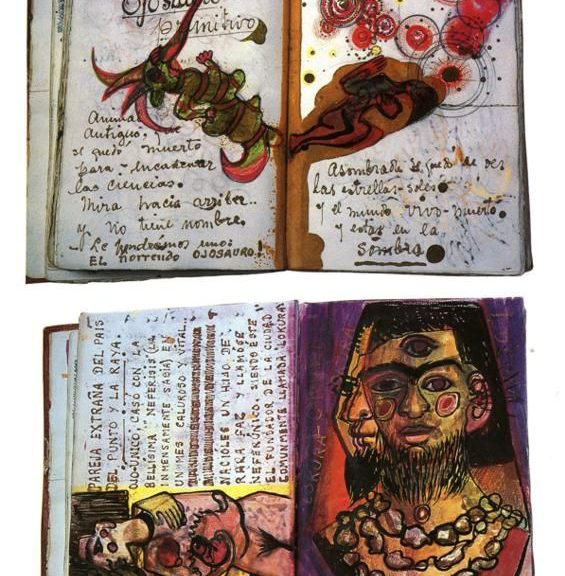 Ojosauro
primitivo
Animal
antiguo, que
se quedó muerto
para encadenar
las ciencias.
Mira hacia arriba..
y no tiene nombre.
- Le pondremos uno:
EL horrendo OJOSAURO!
Asombrada se quedó de ver
las estrellas-soles
y el mundo vivo-muerto
y estar en la
sombra
PAREJA EXTRAÑA DEL PAIS
DEL PUNTO Y LA RAYA.
OJO-UNICO CASÓ CON LA
BELLISIMA NEFERISIS (LA
INMENSAMENTE SABIA) EN
UN MES CALUROSO Y VITAL.
NACIOLES UN HIJO DE
RARA FAZ Y LLAMOSE
NEFERUNICO, SIENDO ESTE
EL FUNDADOR DE LA CIUDAD
COMUNMENTE LLAMADA "LOKURA"
LOKURA